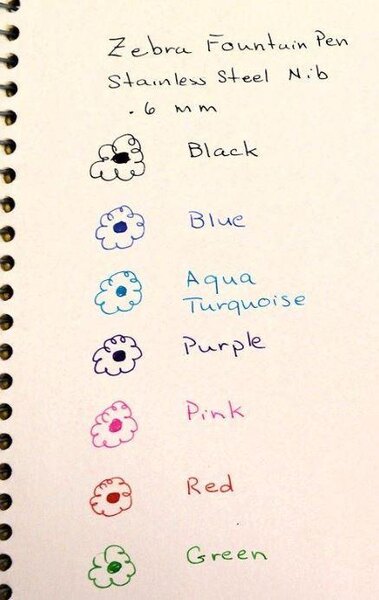 Zebra Fountain Pen
Stainless Steel Nib
.6 mm
Black
Blue
Aqua
Turquoise
Purple
Pink
Red
Green